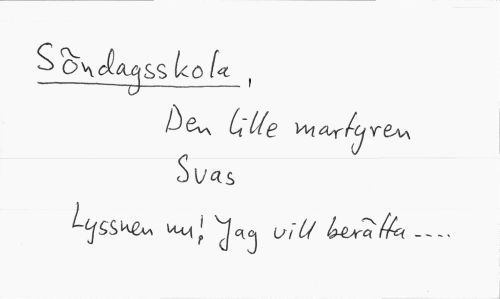 Söndagsskola,
Den lille martyren
Svas
Lyssnen nu! Jag vill berätta....